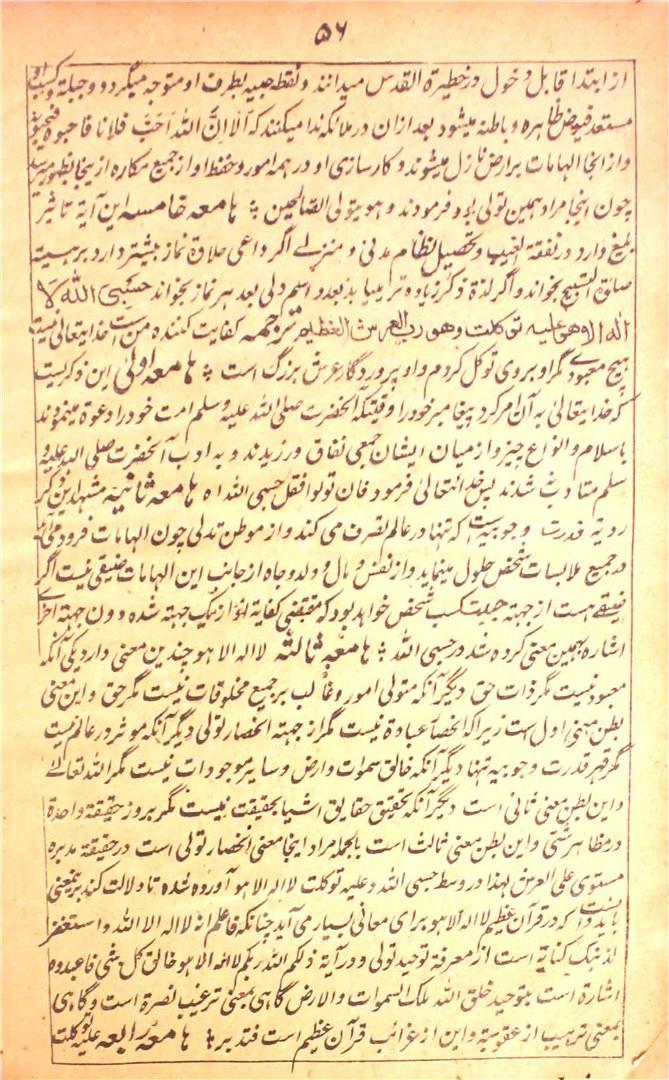 ۵۶
از ابتدا قابل دخول در خطیرة القدس میدانند و نقطه حبیه بطرف او متوجه میگردد و جبلة و کسب او
مستعد فیوض ظاهره و باطنه میشود بعد ازان در ملائکه ندا میکنند که الا ان الله احب فلانا فاحبوه فیحبونه
و از انجا الهامات بر ارض نازل میشوند و کارسازی او در همه امور و حفظ او از جمیع مکاره از ینجا بظهور میرسد
چون اینجا مراد همین تولی بود فرمودند و هو یتولی الصالحین ؞ هامعه خامسه این آیة تاثیر
بلیغ دارد در نفقه الغیب و تحصیل انتظام مدنی و منزلی اگر داعی علاقة نماز بیشتر دارد بر هیئت
صلوة التسبیح بخواند و اگر لذة ذکر زیاده تر مییابد بعدد اسم ولی بعد هر نماز بخواند حسبی الله لا
اله الا هو علیه توکلت و هو رب العرش العظیم ترجمه کفایت کننده من است خدایتعالی نیست
هیچ معبودے مگر او بروی توکل کردم و او پروردگار عرش بزرگ است ؞ هامعه اولی این ذکریست
که خدایتعالی به آن امر کرد پیغامبر خود را وقتیکه آنحضرت صلی الله علیه وسلم امت خود را دعوة مینمودند
باسلام و انواع چیز و از میان ایشان جمعی نفاق ورزیدند و به ادب آنحضرت صلی الله علیه و
سلم متادب نشدند پس خدایتعالی فرمود فان تولوا فقل حسبی الله اه هامعه ثانیه مشهد این ذکر
رویة قدرت وجوبیه است که تنها در عالم تصرف می کند و از موطن تدلی چون الهامات فرود می آید
در جمیع ملابسات شخص حلول مینماید و از نفس و مال و ولد و جاه از جانب این الهامات ضیقی نیست اگر
ضیقے هست از جهة جبلت کسب شخص خواهد بود که مقتضی کفایة او از یک جهته شده دون جهته اخرے
اشاره بهمین معنی کرده شد در حسبی الله ؞ هامعه ثالثه لا اله الا هو چندین معنی دارد یکی آنکه
معبود نیست مگر ذات حق دیگر آنکه متولی امور و غالب بر جمیع مخلوقات نیست مگر حق و این معنی
بطن معنی اول است زیرا که انحصار عبادة نیست مگر از جهة انحصار تولی دیگر آنکه موثر در عالم نیست
مگر قهر قدرت وجوبیه تنها دیگر آنکه خالق سموات و ارض و سایر موجودات نیست مگر الله تعالے
و این بطن معنی ثانی است دیگر آنکه تحقیق حقایق اشیا بحقیقت نیست مگر بروز حقیقة واحدة
در مظاهر شتی و این بطن معنی ثالث است بالجمله مراد اینجا معنی انحصار تولی است در حقیقة مدبره
مستوی علی العرش لهذا در وسط حسبی الله و علیه توکلت لا اله الا هو آورده شده تا دلالت کند بر همین معنی
باید دانست که در قرآن عظیم لا اله الا هو برای معانی بسیار می آید چنانکه فاعلم انه لا اله الا الله و استغفر
لذنبک کنایة است از معرفة توحید تولی و در آیة ذلکم الله ربکم لا اله الا هو خالق کل شی فاعبدوه
اشارة است بتوحید خلق الله ملک السموات والارض گاهی بمعنی ترغیب نصرة است و گاهی
بمعنی ترهیب از عقوبة و این از غرائب قرآن عظیم است فتدبر ؞ هامعه رابعه علیه توکلت